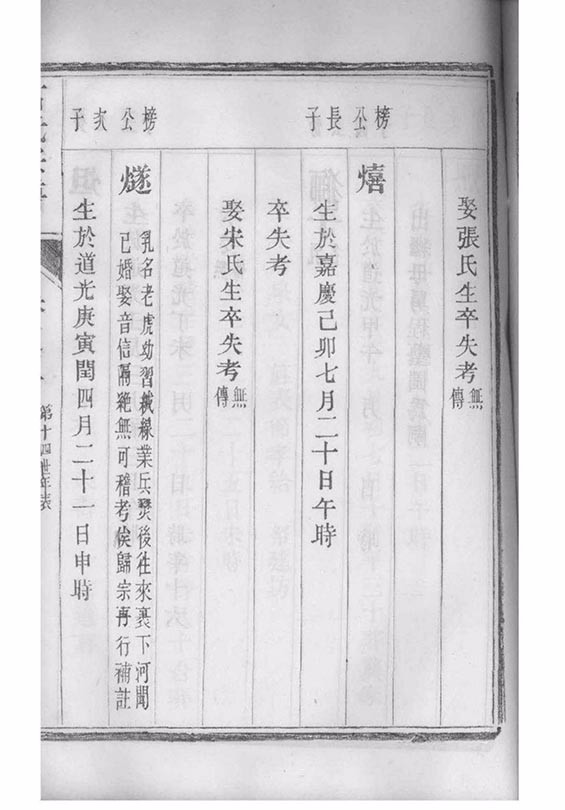 娶張氏生卒失考
無傳
榜公長子
熺
生於嘉慶己卯七月二十日午時
卒失考
娶宋氏生卒失考
無傳
榜公次子
燧
乳名老虎幼習絨線業兵燹後往來裏下河聞
已婚娶音信隔絶無可稽考俟歸宗再行補註
生於道光庚寅閏四月二十一日申時
第十四世年表